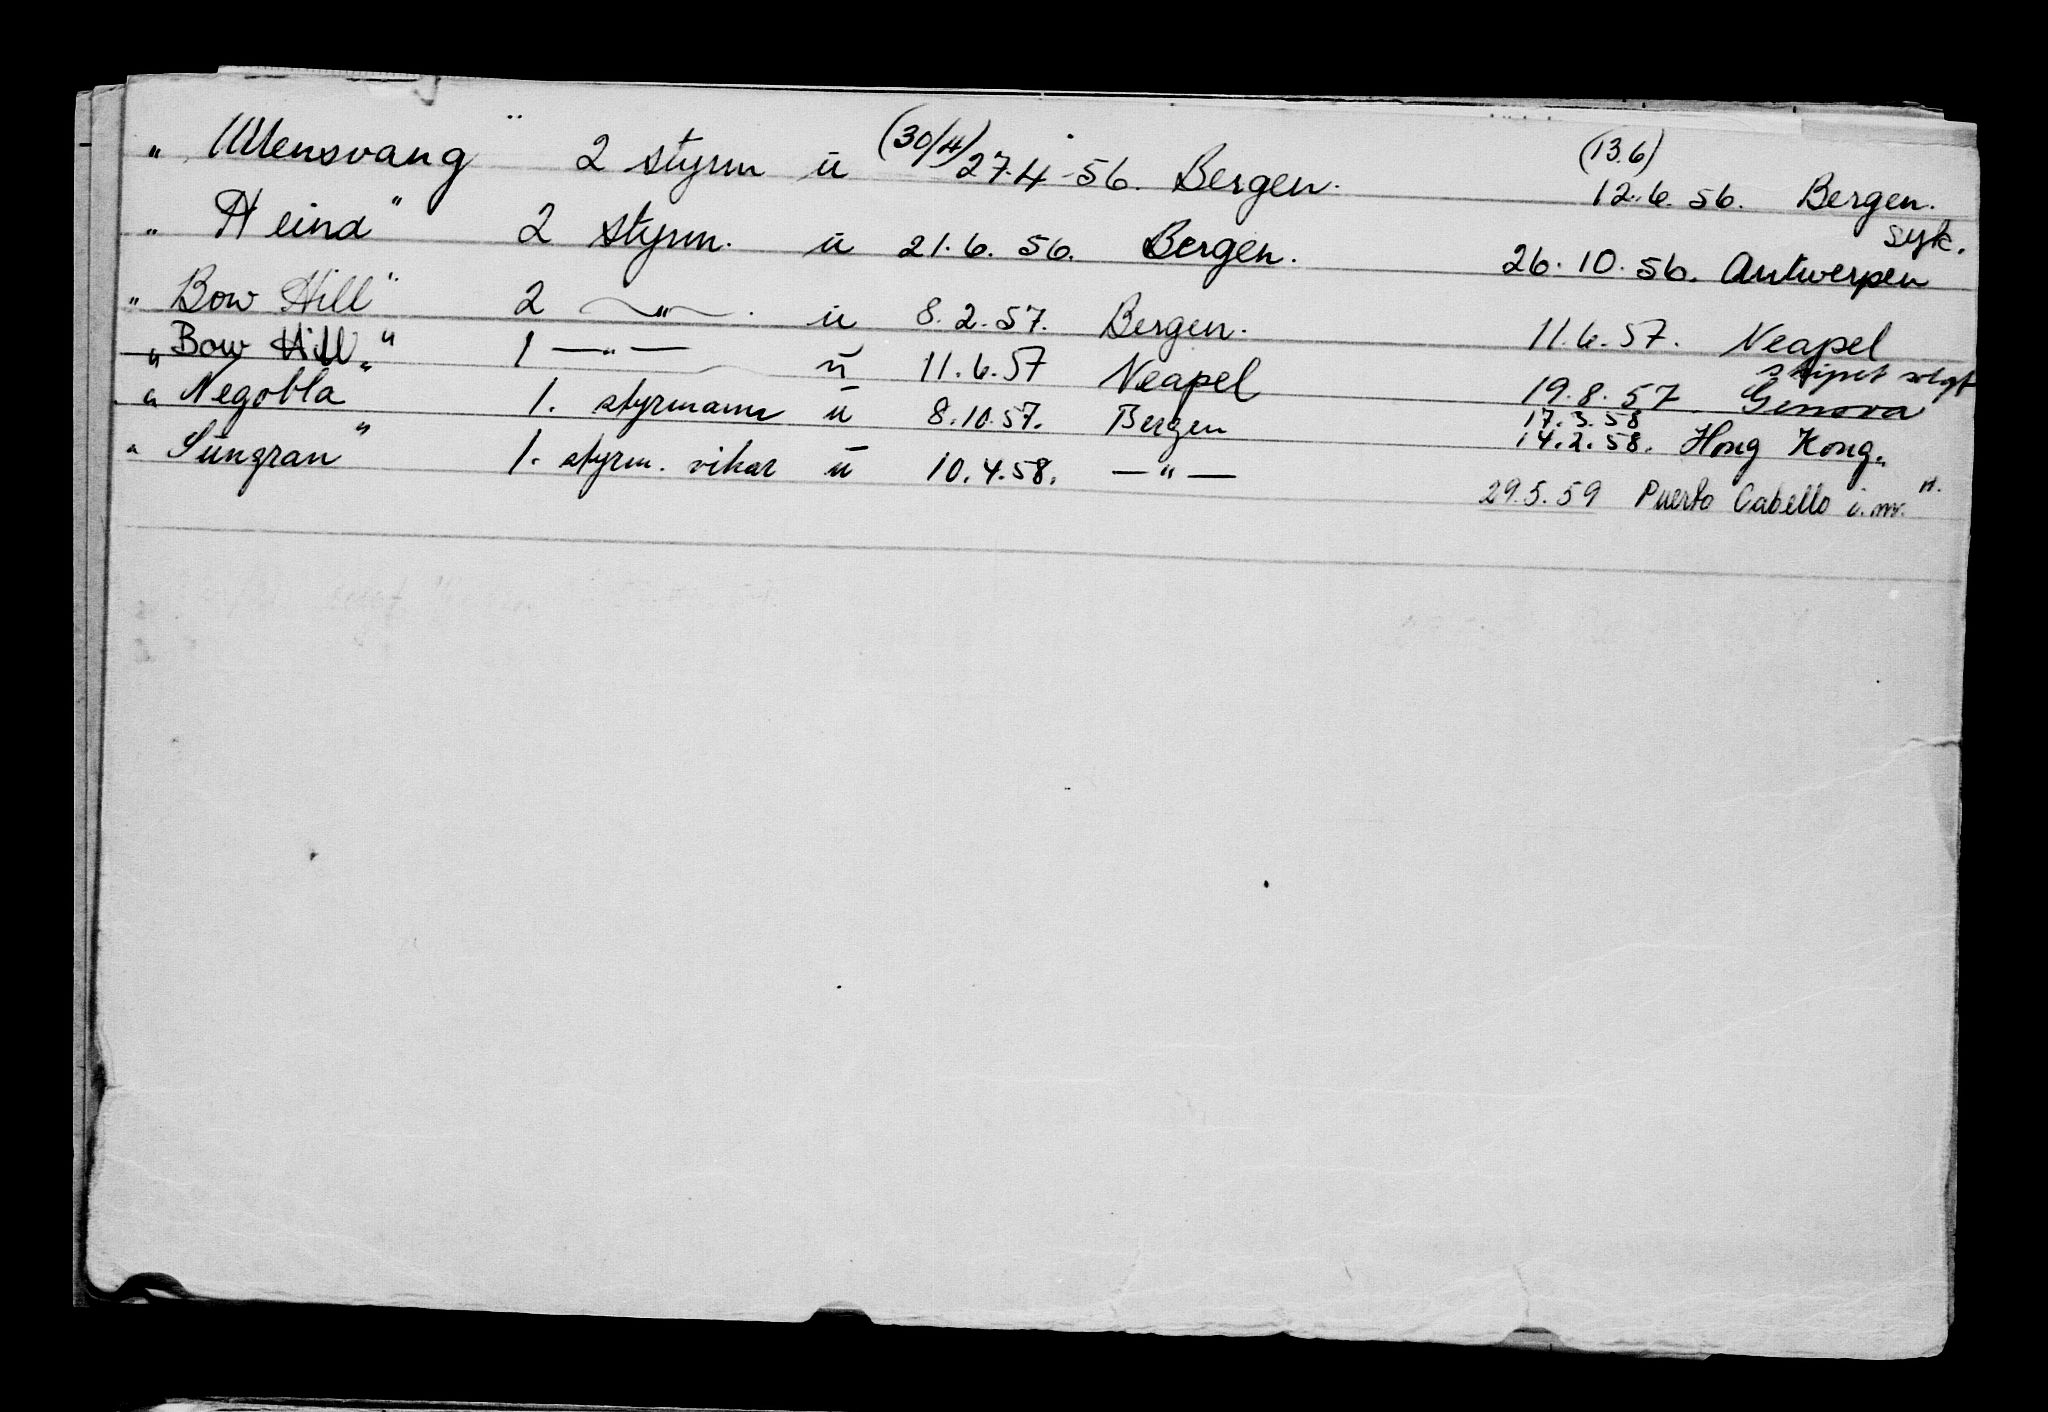 (30/4) (13.6)
" Ullensvang " 2 styrm u 27.4-56. Bergen. 12.6.56. Bergen.
" Heind " 2 styrm. u 21.6.56. Bergen. 26.10.56. Antwerpen syk.
" Bow Hill " 2 —"— . u 8.2.57. Bergen. 11.6.57. Neapel
" Bow Hill " 1 —"— u 11.6.57 Neapel 19.8.57 Genova skipet solgt
" Negobla " 1. styrmann u 8.10.57. Bergen 17.3.58 14.2.58. Hong Kong.
" Sungran " 1. styrm. vikar u 10.4.58. —"— 29.5.59 Puerto Cabello